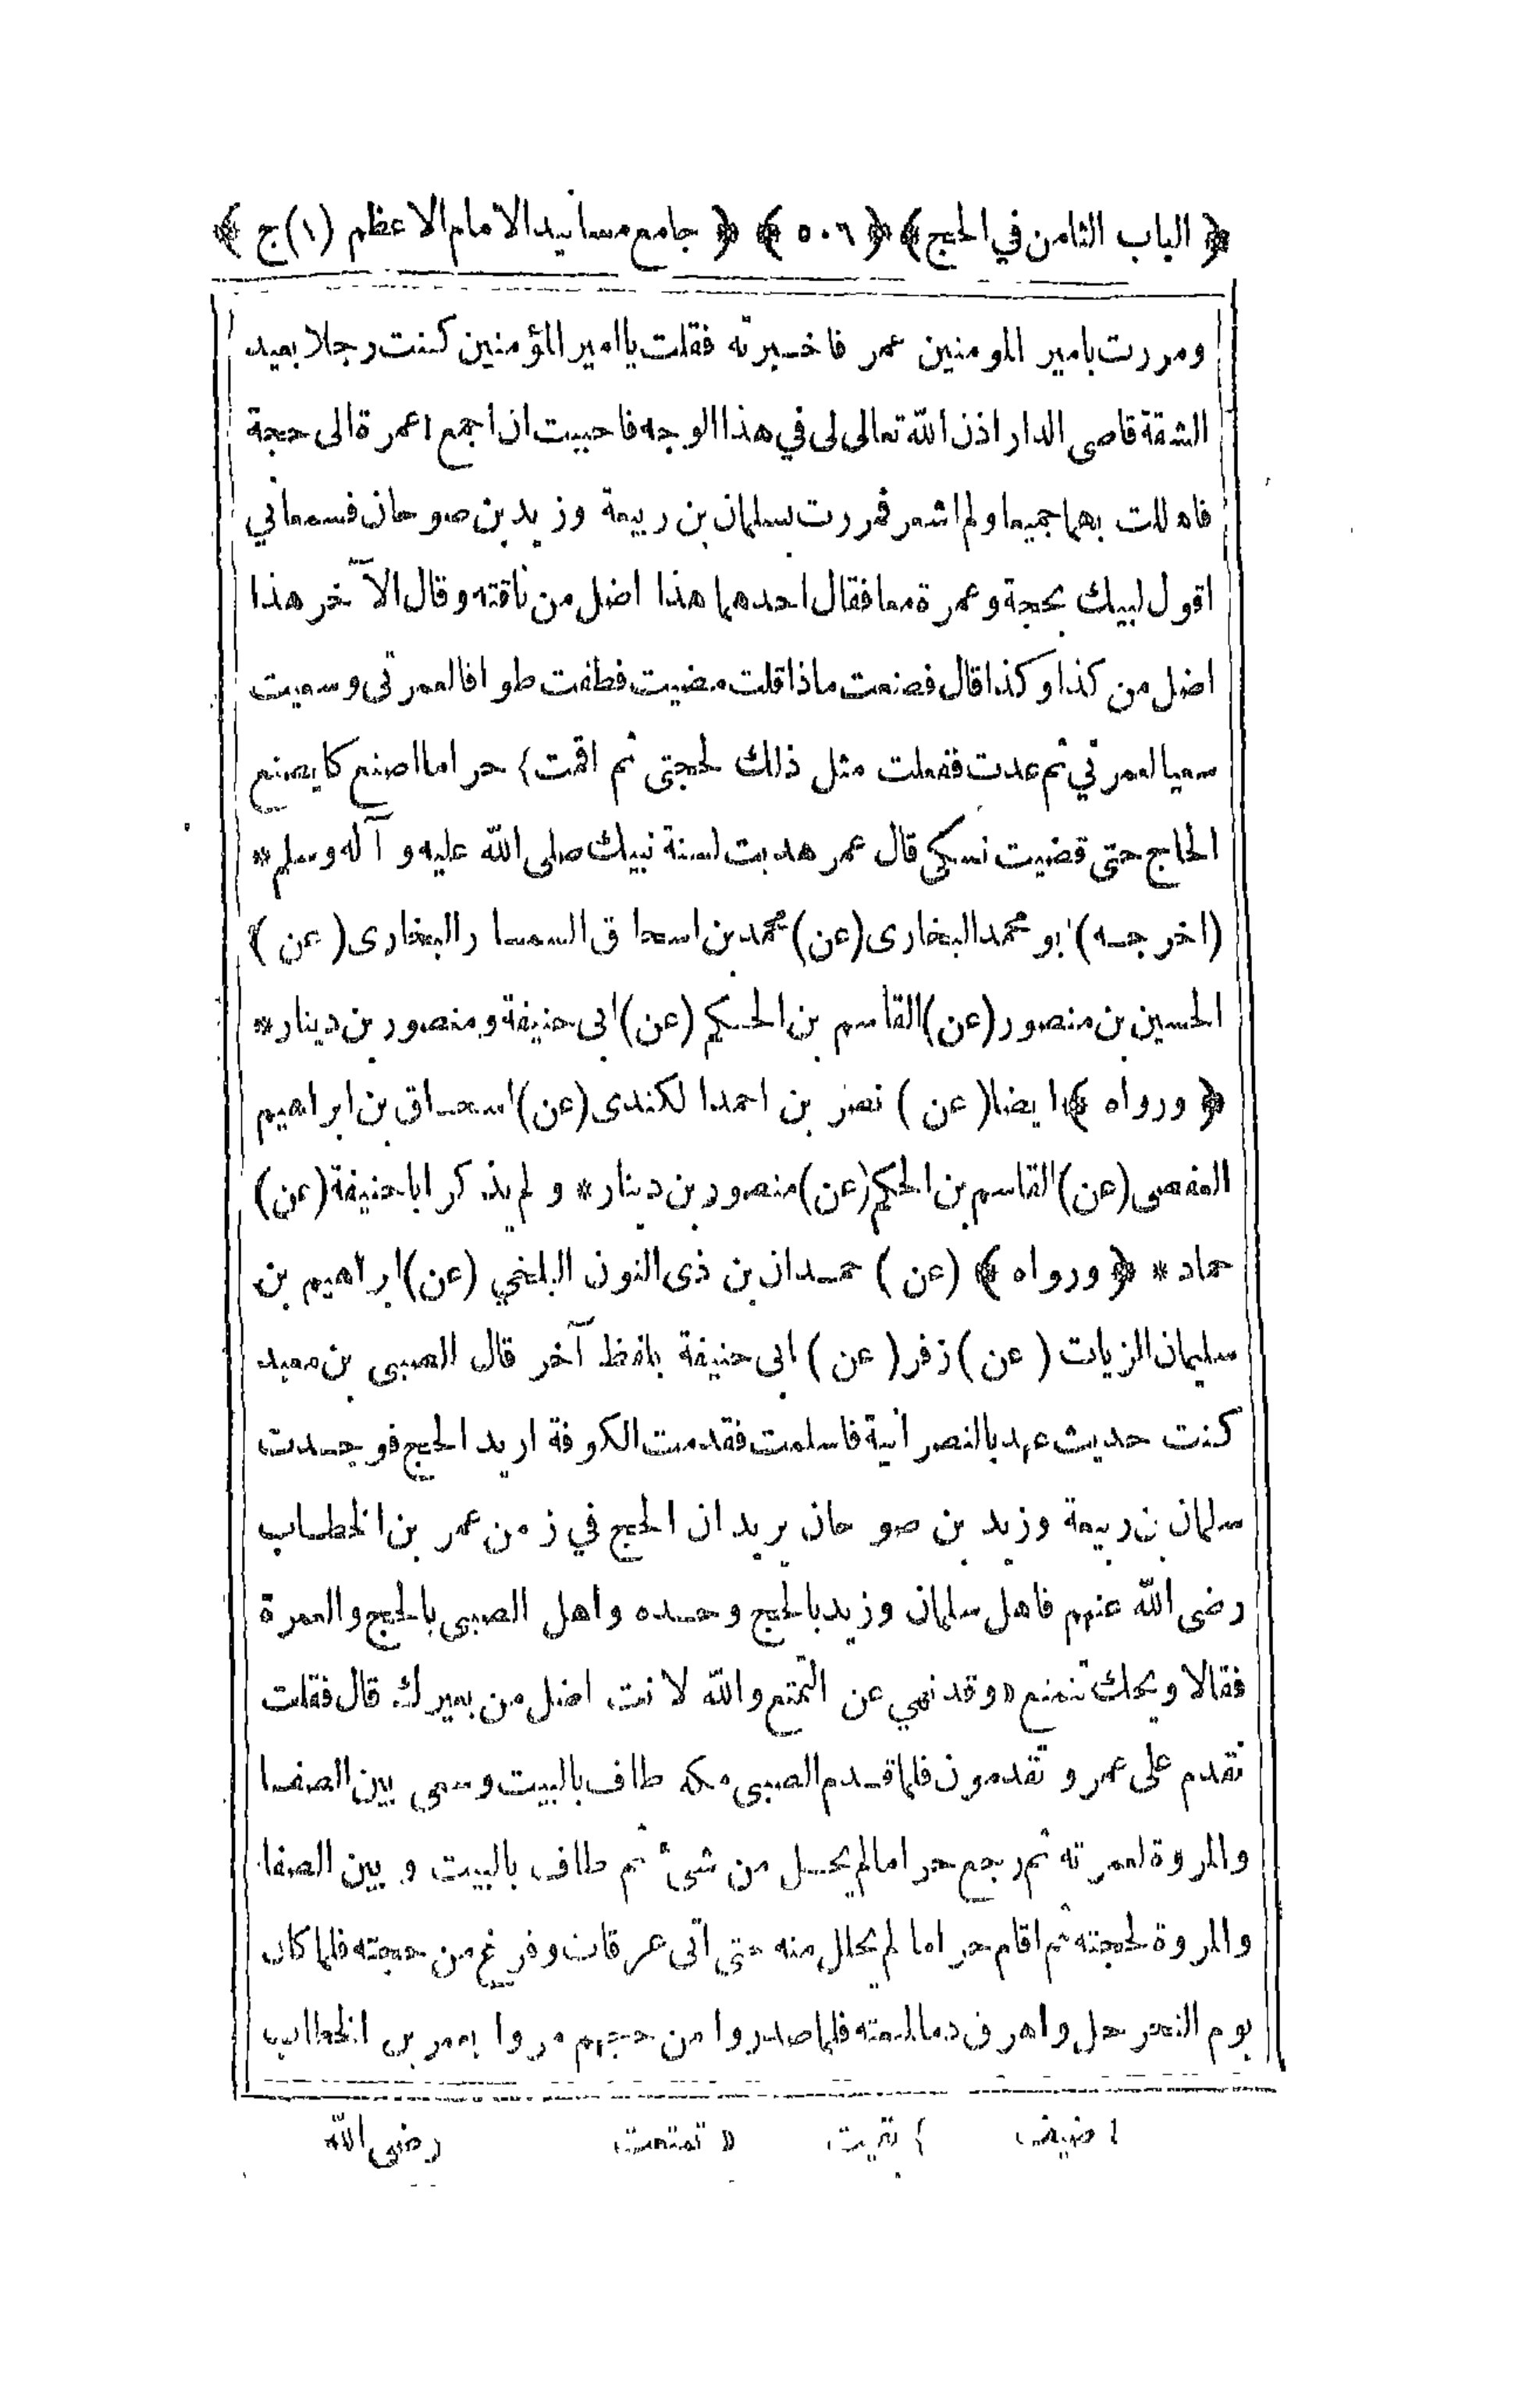 ﴿ الباب الثامن في الحج ﴾ ﴿ ٥٠٦ ﴾ ﴿ جامع مسانيد الامام الاعظم (١) ج ﴾
ومررت بامير المومنين عمر فاخبرته فقلت يا امير المؤمنين كنت رجلا بعيد
الشقة قاصى الدار اذن الله تعالى لى في هذا الوجه فاحببت ان اجمع ١ عمرة الى حجة
فاهللت بهما جميعا ولم اشعر فمررت بسلمان بن ربيعة وزيد بن صوحان فسمعاني
اقول لبيك بحجة وعمرة معا فقال احدهما هذا اضل من ناقته وقال الآخر هذا
اضل من كذا وكذا قال فصنعت ماذا قلت مضيت فطفت طوافا لعمرتى وسعيت
سعيا لعمرتي ثم عدت ففعلت مثل ذلك لحجتى ثم اقمت ٤ حراما اصنع كما يصنع
الحاج حتى قضيت نسكى قال عمر هديت لسنة نبيك صلى الله عليه وآله وسلم *
(اخرجه) ابو محمد البخارى (عن) محمد بن اسحاق السمسار البخارى (عن)
الحسين بن منصور (عن) القاسم بن الحكم (عن) ابى حنيفة ومنصور بن دينار *
﴿ ورواه ﴾ ايضا (عن) نصر بن احمد الكندى (عن) اسحاق بن ابراهيم
(عن) القاسم بن الحكم (عن) منصور بن دينار * ولم يذكر ابا حنيفة (عن)
حماد * ﴿ ورواه ﴾ (عن) حمدان بن ذى النون البلخي (عن) ابراهيم بن
سليمان الزيات (عن) زفر (عن) ابى حنيفة بلفظ آخر قال الصبى بن معبد
كنت حديث عهد بالنصرانية فاسلمت فقدمت الكوفة اريد الحج فوجدت
سلمان بن ربيعة وزيد بن صوحان يريدان الحج في زمن عمر بن الخطاب
رضى الله عنهم فاهل سلمان وزيد بالحج وحده واهل الصبى بالحج والعمرة
فقالا ويحك تمتع ٥ وقد نهي عن التمتع والله لانت اضل من بعيرك قال فقلت
نقدم على عمر وتقدمون فلما قدم الصبى مكة طاف بالبيت وسعى بين الصفا
والمروة لعمرته ثم رجع حراما لم يحل من شئ ثم طاف بالبيت وبين الصفا
والمروة لحجته ثم اقام حراما لم يحلل منه حتى اتى عرفات وفرغ من حجته فلما كان
يوم النحر حل واهرق دما لمتعته فلما صدروا من حجهم مروا بعمر بن الخطاب
١ ٤ ٥ تمتعت رضى الله